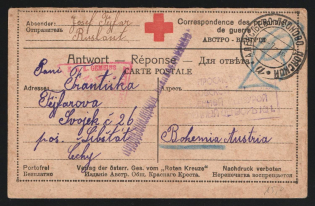 Absender: Josef Tejfar
Отправитель Rusland
Correspondence des prisonniers
de guerre
АВСТРО-ВЕНГРІЯ
Antwort — Réponse — Для отвѣта
CARTE POSTALE
Paní
Adresse: Františka
Адресъ:
Tejfarova
Svojek č 26
pos. Libštát
Čechy
Bohemia Austria
Portofrei
Безплатно
Verlag der österr. Ges. vom „Roten Kreuze“
Изданіе Австр. Общ. Краснаго Креста.
Nachdruck verboten
Перепечатка воспрещается